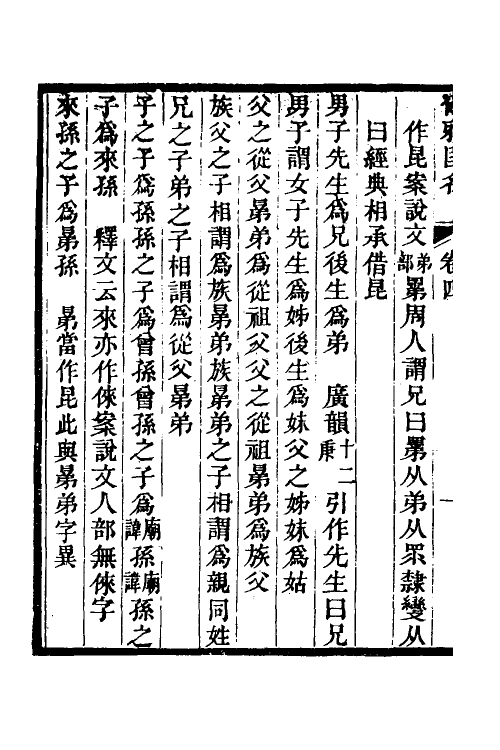 爾雅匡名 卷四 一
作昆案說文弟部罤周人謂兄曰罤从弟从眔隸變从
曰經典相承借昆
男子先生爲兄後生爲弟 廣韻十二庚引作先生曰兄
男子謂女子先生爲姊後生爲妹父之姊妹爲姑
父之從父晜弟爲從祖父父之從祖晜弟爲族父
族父之子相謂爲族晜弟族晜弟之子相謂爲親同姓
兄之子弟之子相謂爲從父晜弟
子之子爲孫孫之子爲曾孫曾孫之子爲廟諱孫廟諱孫之
子爲來孫 釋文云來亦作倈案說文人部無倈字
來孫之子爲晜孫 晜當作昆此與晜弟字異